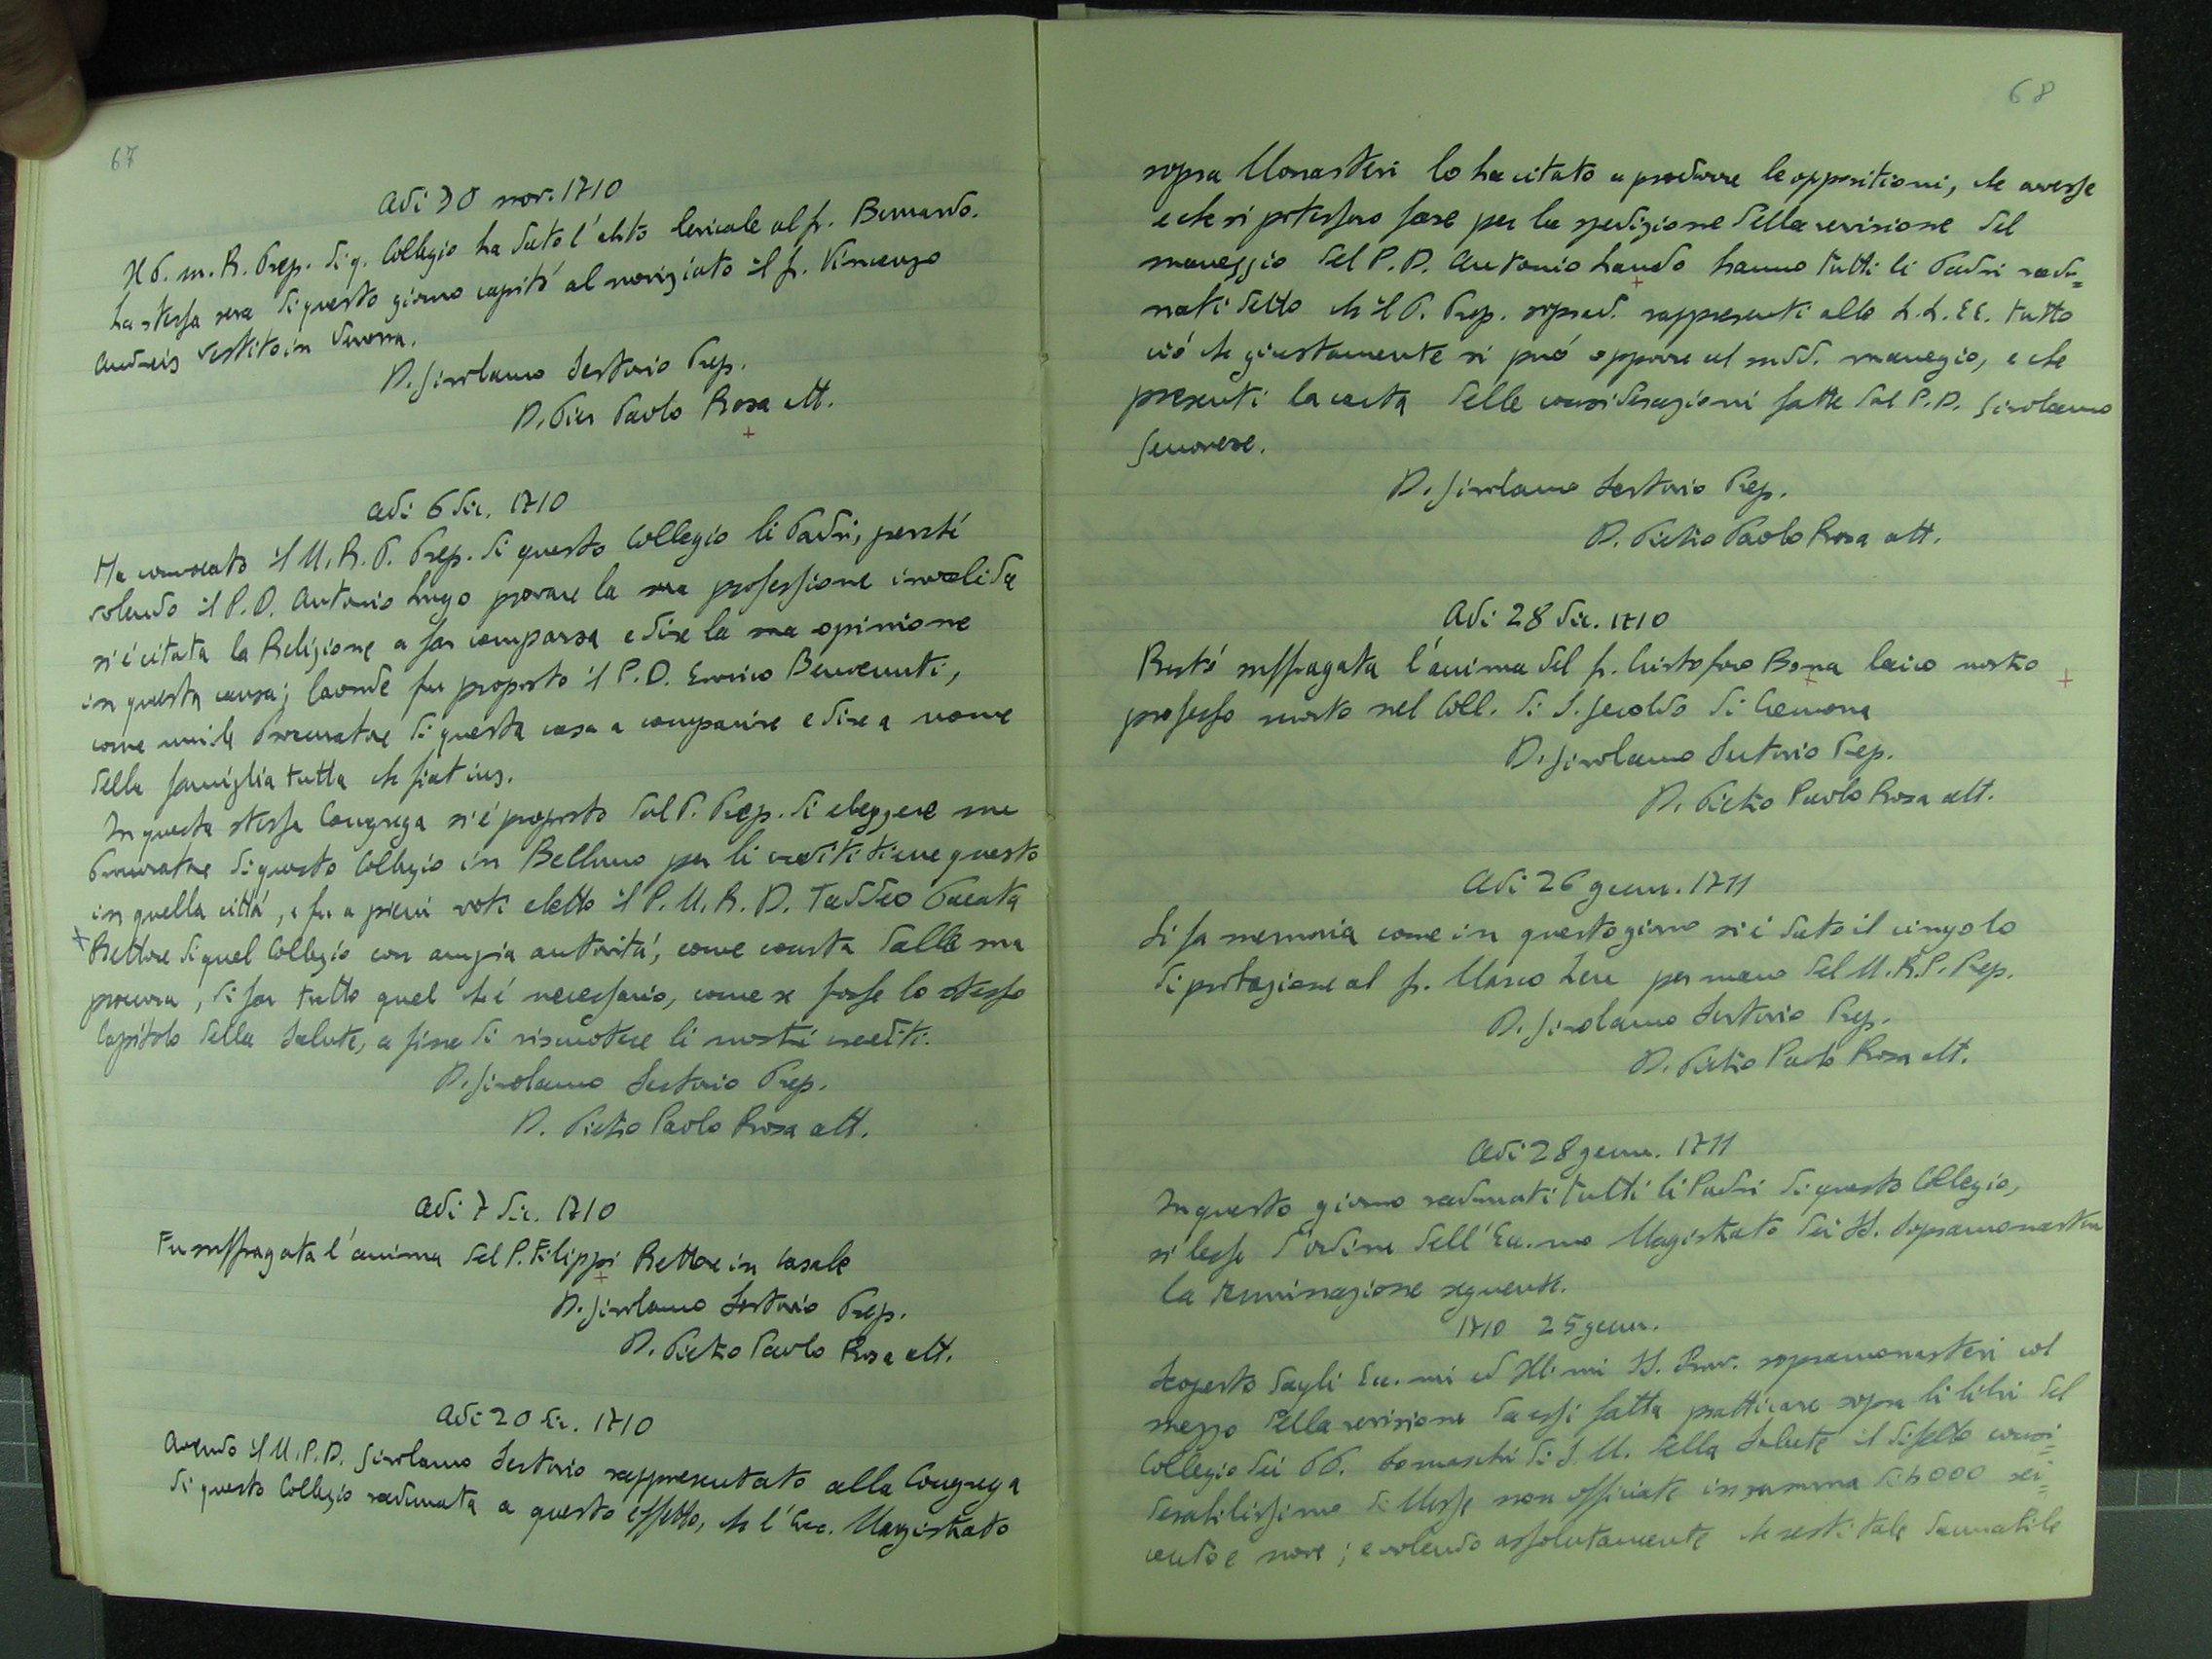 67
Adi 30 nov. 1710
Il P. m. R. Prep. di q. Collegio ha dato l'abito lericale al fr. Bernardo.
La stessa sera di questo giorno capitò al noviziato il fr. Vincenzo
Andreis vestito in Verona.
D. Girolamo Sertorio Prep.
D. Pier Paolo Rosa att.
Adi 6 dic. 1710
Ha convocato il M. R. P. Prep. di questo Collegio li Padri, perché
volendo il P. D. Antonio Lugo provare la sua professione invalida
si è citata la Religione a far comparsa e dire la sua opinione
in questa causa; laonde fu proposto il P. D. Enrico Benvenuti,
come Procuratore di questa casa a comparire e dire a nome
della famiglia tutta che fiat ius.
In questa stessa Congrega si è proposto dal P. Prep. di eleggere un
Procuratore di questo Collegio in Belluno per li crediti tiene questo
in quella città, e fu a pieni voti eletto il P. M. R. D. Taddeo Pacata
+ Rettore di quel Collegio con ampia autorità, come consta dalla sua
procura, di far tutto quel ch'è necessario, come se fosse lo stesso
Capitolo della Salute, a fine di riscuotere li nostri crediti.
D. Girolamo Sertorio Prep.
D. Pietro Paolo Rosa att.
Adi 7 dic. 1710
Fu suffragata l'anima del P. Filippi Rettore in Casale
D. Girolamo Sertorio Prep.
D. Pietro Paolo Rosa att.
Adi 20 dic. 1710
Avendo il M. P. D. Girolamo Sertorio rappresentato alla Congrega
di questo Collegio radunata a questo effetto, che l'Ecc. Magistrato
68
sopra Monasteri lo ha citato a produrre le oppositioni, che avesse
e che si potessero fare per la spedizione della revisione del
maneggio del P. D. Antonio Lando hanno tutti li Padri radu=
nati detto che il P. Prep. soprad. rappresenti alle L.L. EE. tutto
ciò che giustamente si può opporre al sudd. manegio, e che
presenti la carta delle considerazioni fatte dal P. D. Girolamo
Genovese.
D. Girolamo Sertorio Prep.
D. Pietro Paolo Rosa att.
Adi 28 dic. 1710
Restò suffragata l'anima del fr. Cristoforo Bona laico nostro
professo morto nel Coll. di S. Geroldo di Cremona
D. Girolamo Sertorio Prep.
D. Pietro Paolo Rosa att.
Adi 26 genn. 1711
Si fa memoria come in questo giorno si è dato il cingolo
di probazione al fr. Marco Zen per mano del M. R. P. Prep.
D. Girolamo Sertorio Prep.
D. Pietro Paolo Rosa att.
Adi 28 genn. 1711
In questo giorno radunati tutti li Padri di questo Collegio,
si lesse d'ordine dell'Ecc.mo Magistrato dei SS. Sopramonasteri
la terminazione seguente.
1710 25 genn.
Scoperto dagli Ecc.mi ed Ill.mi SS. Prov. sopramonasteri col
mezzo della revisione da essi fatta pratticare sopra li libri del
Collegio dei PP. Somaschi di S. M. della Salute il difetto consi=
derabilissimo di Messe non officiate in summa di 6000 sei=
cento e nove; e volendo assolutamente che resti tale dannabile